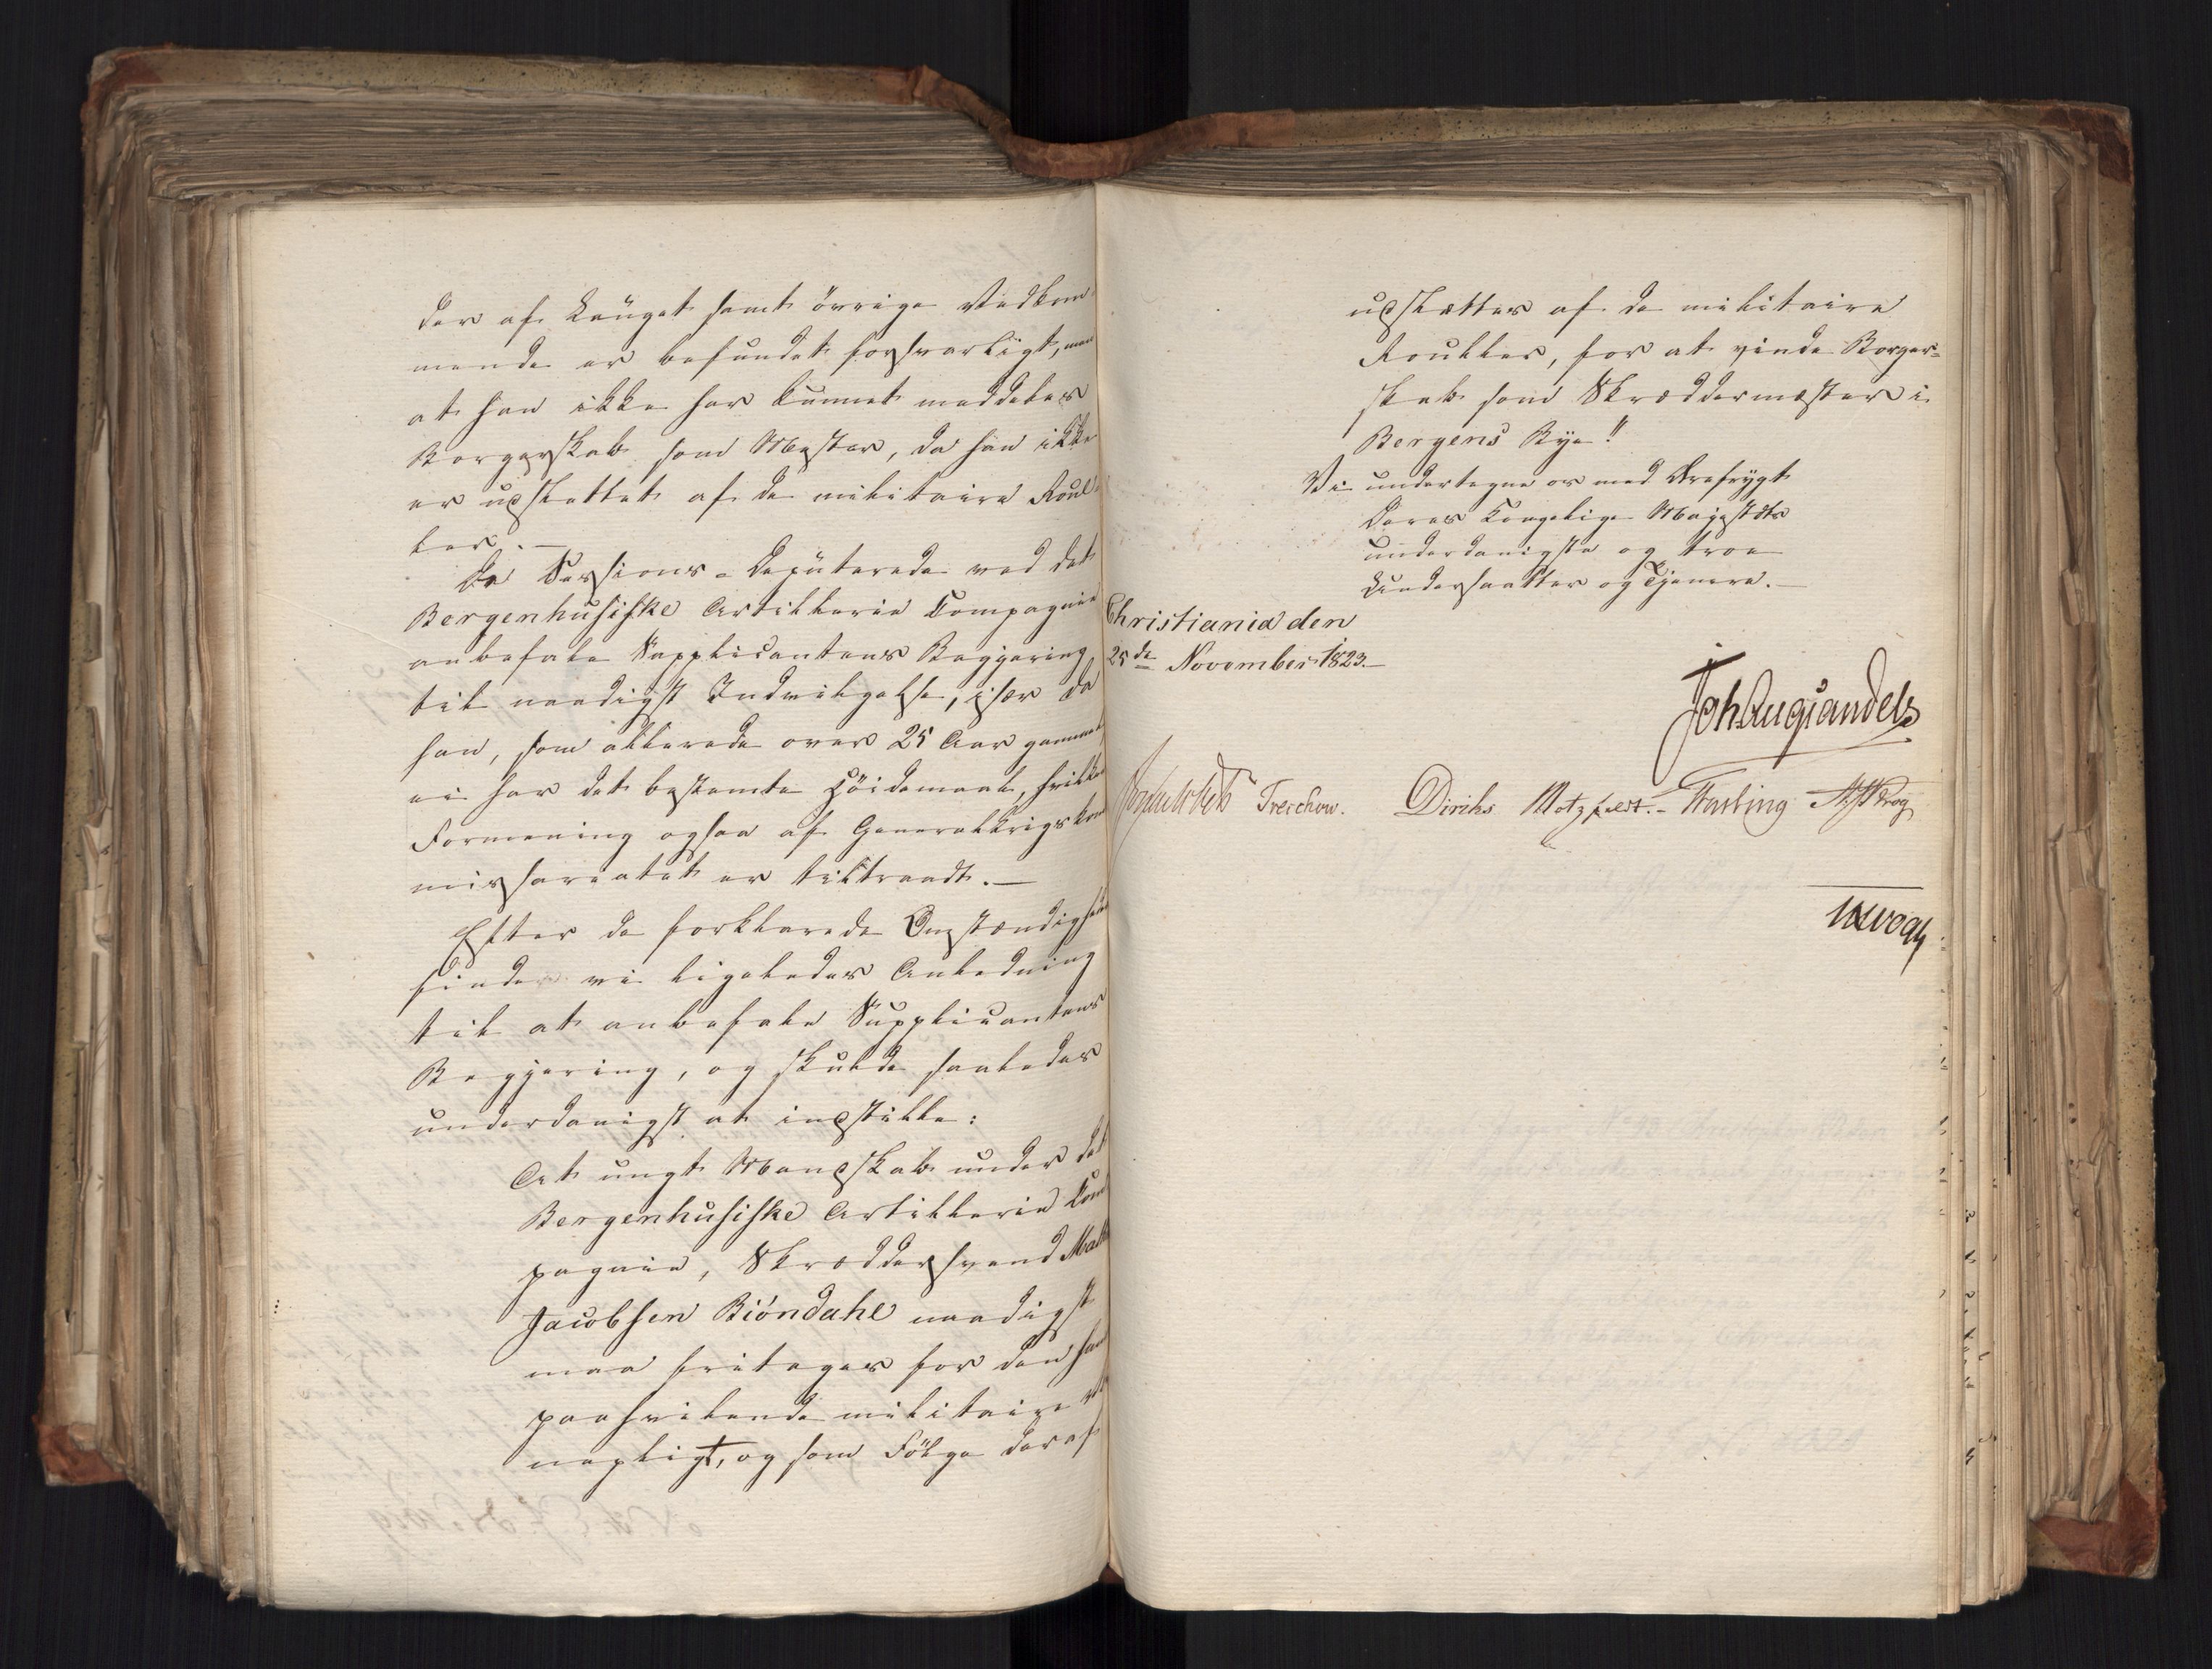 der af Lauget samt övrige Vedkom-
mende er befundet forsvarligt, men
at han ikke har kunnet meddeles
Borgerskab som Mester, da han ikke
er udslettet af de militaire Roul-
ler. —
De Sessions-Deputerede ved det
Bergenhusiske Artillerie Compagnie
anbefale Supplicantens Begjering
til naadigst Indvilgelse, især da
han, som allerede over 25 Aar gammel,
ei har det bestemte Höidemaal, hvilken
Formening ogsaa af Generalkrigskom-
missariatet er tiltraadt. —
Efter de forklarede Omstændigheder
finde vi ligeledes Anledning
til at anbefale Supplicantens
Begjering, og skulde saaledes
underdanigst at indstille:
At ungt Mandskab under det
Bergenhusiske Artillerie Com-
pagnie, Skræddersvend
Jacobsen Biöndahl naadigst
maa fritages for den ham
paahvilende militaire
nepligt, og som Fölge deraf
udslettes af de militaire
Rouller, for at vinde Borger-
skab som Skræddermester i
Bergens Bye!"
Vi undertegne os med Ærefrygt
Deres Kongelige Majestæts
underdanigste og troe
Undersaatter og Tjenere. —
Christiania den
25de November 1823. —
Joh Aug Sandels
Treschow. Diriks Motzfeldt. - Fasting Krog
Vogt